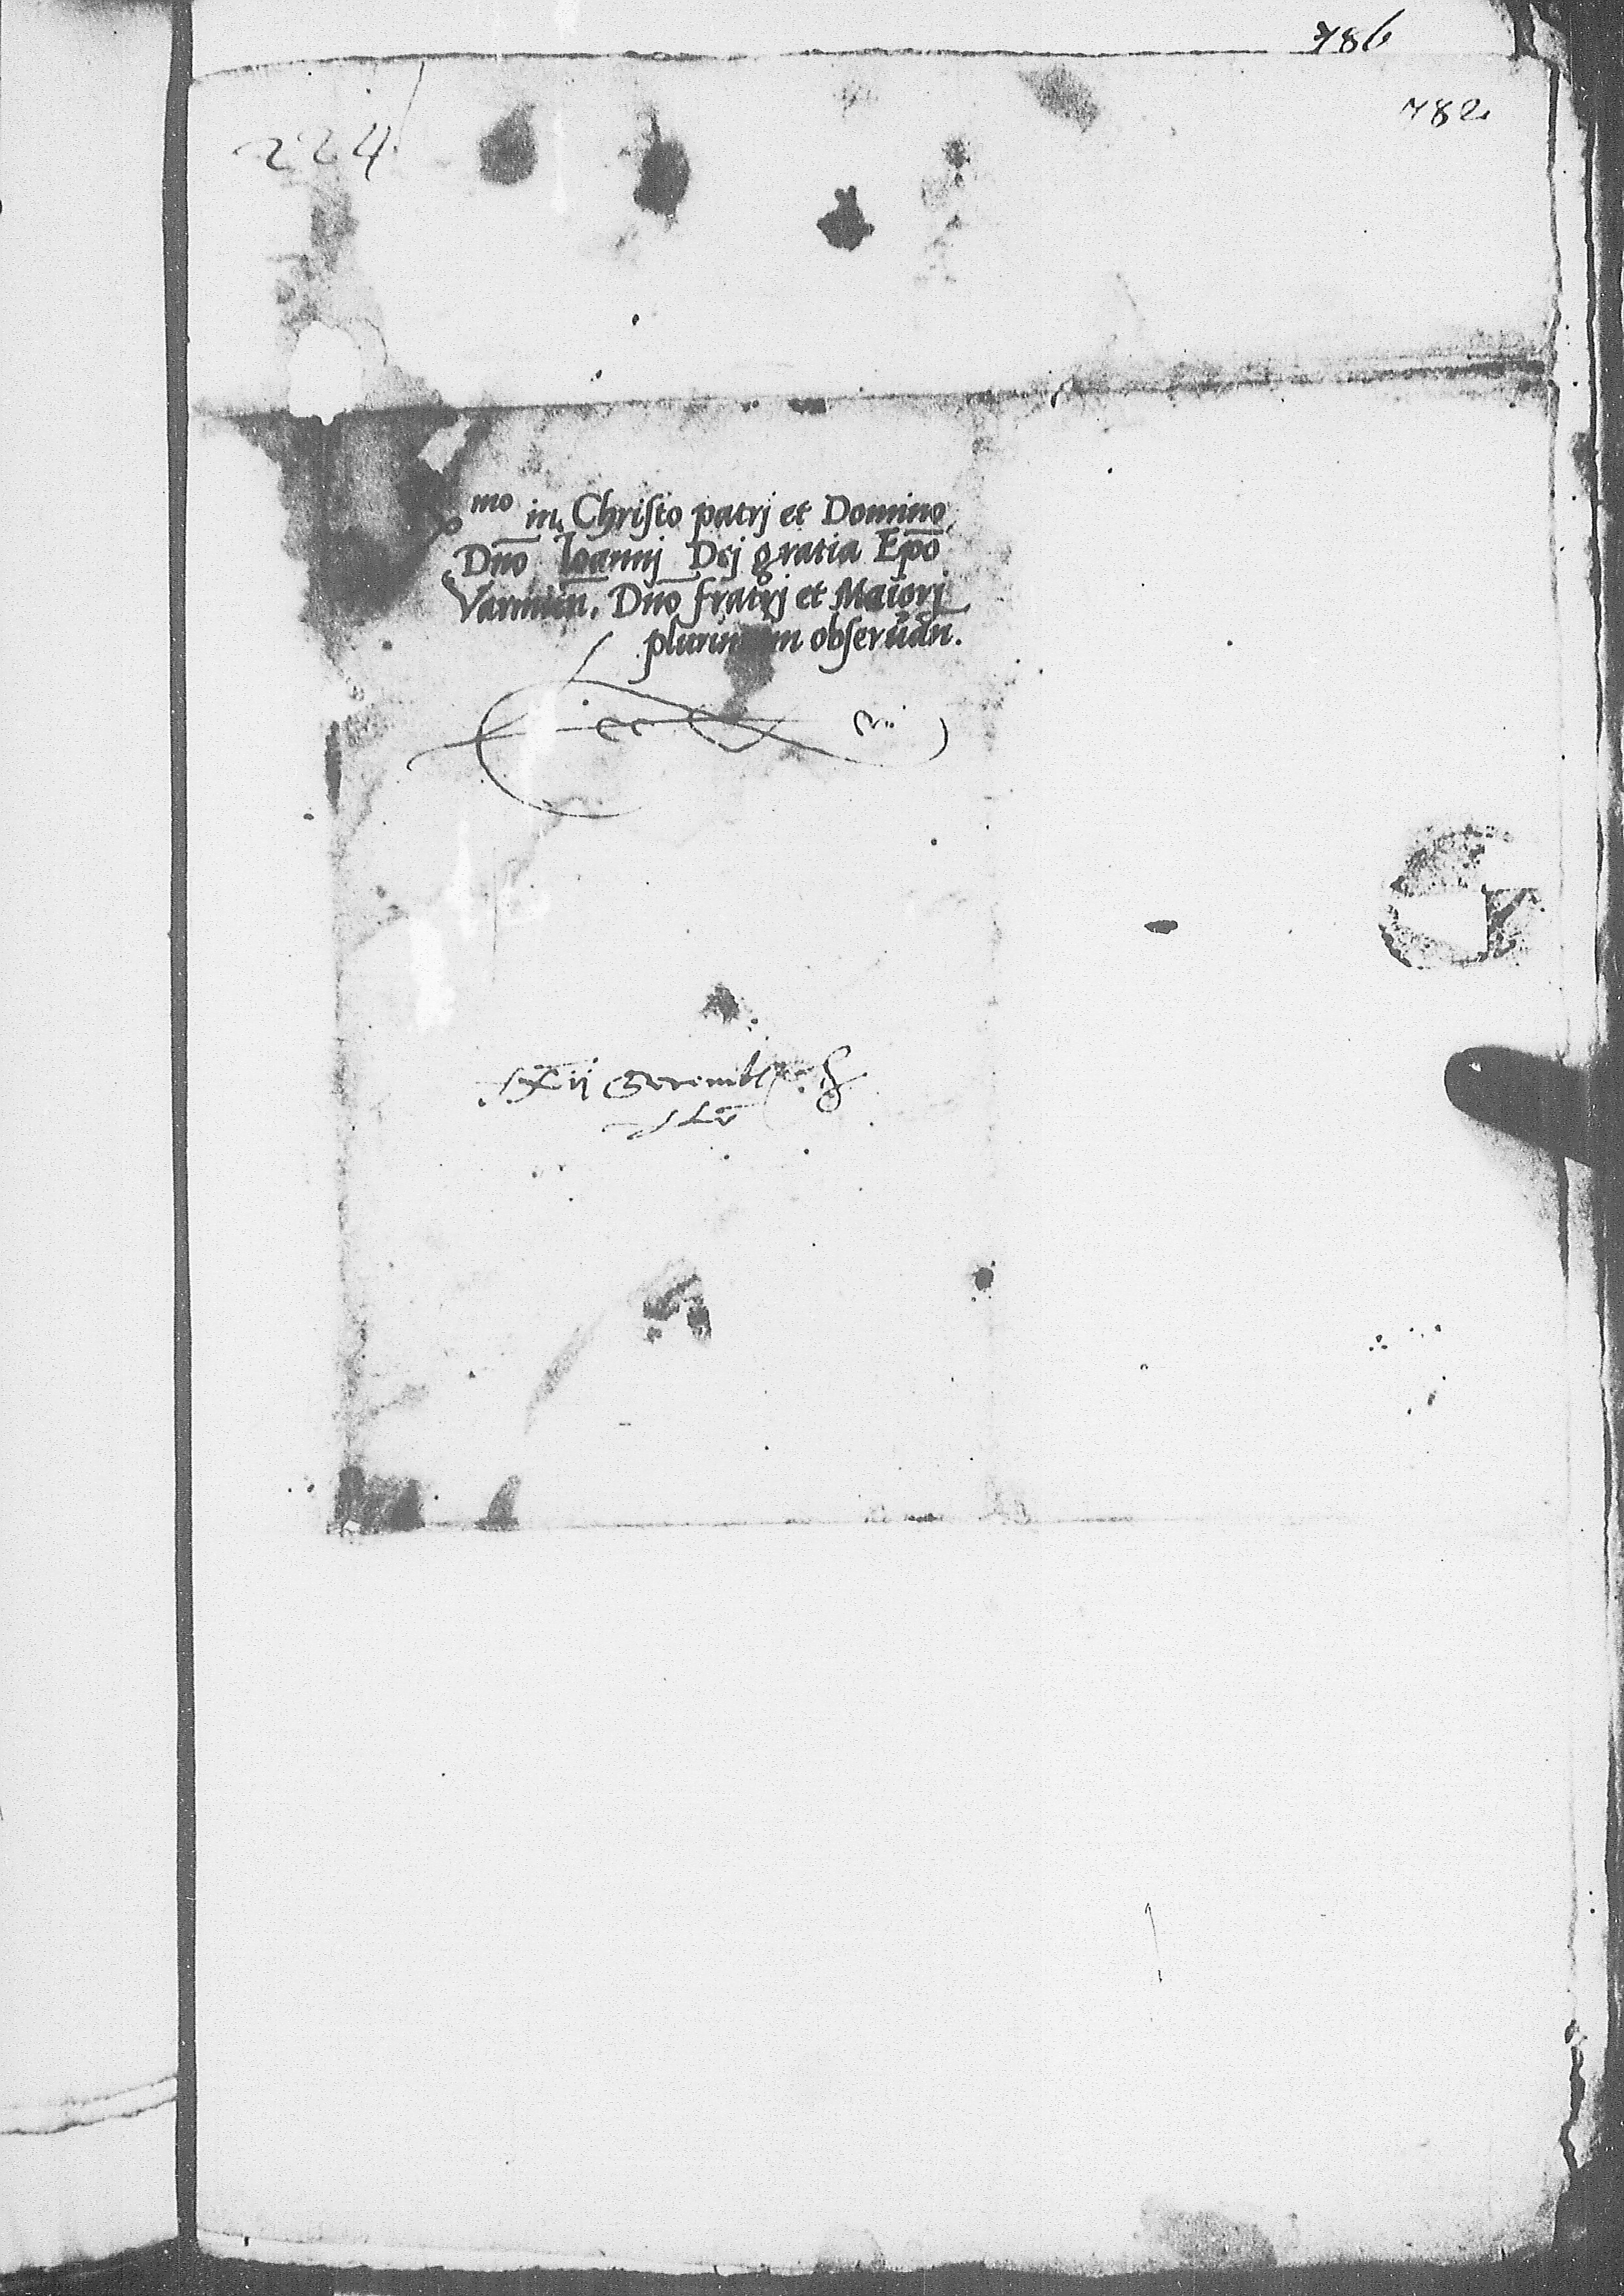 786
782
224
mo in Christo patrj et Domino
Dño Ioannj Dej gratia Epõ
Varmieñ. Dño fratrj et Maiorj
plurimum obseruañ.